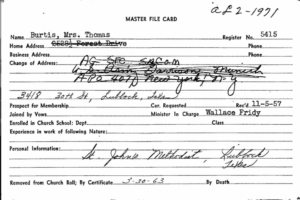 al 2-1971
MASTER FILE CARD
Name Burtis, Mrs. Thomas Register No. 5415
Home Address Forest Drive Phone
Business Address Phone
Change of Address:
3418 30th St, Lubbock, Texas
Prospect for Membership Car. Requested Rec'd 11-5-57
Joined by Vows Minister In Charge Wallace Fridy
Enrolled in Church School: Dept. Class
Experience in work of following Nature:
Personal Information:
St. Johns Methodist, Lubbock
Texas
Removed from Church Roll; By Certificate 3-30-63 By Death